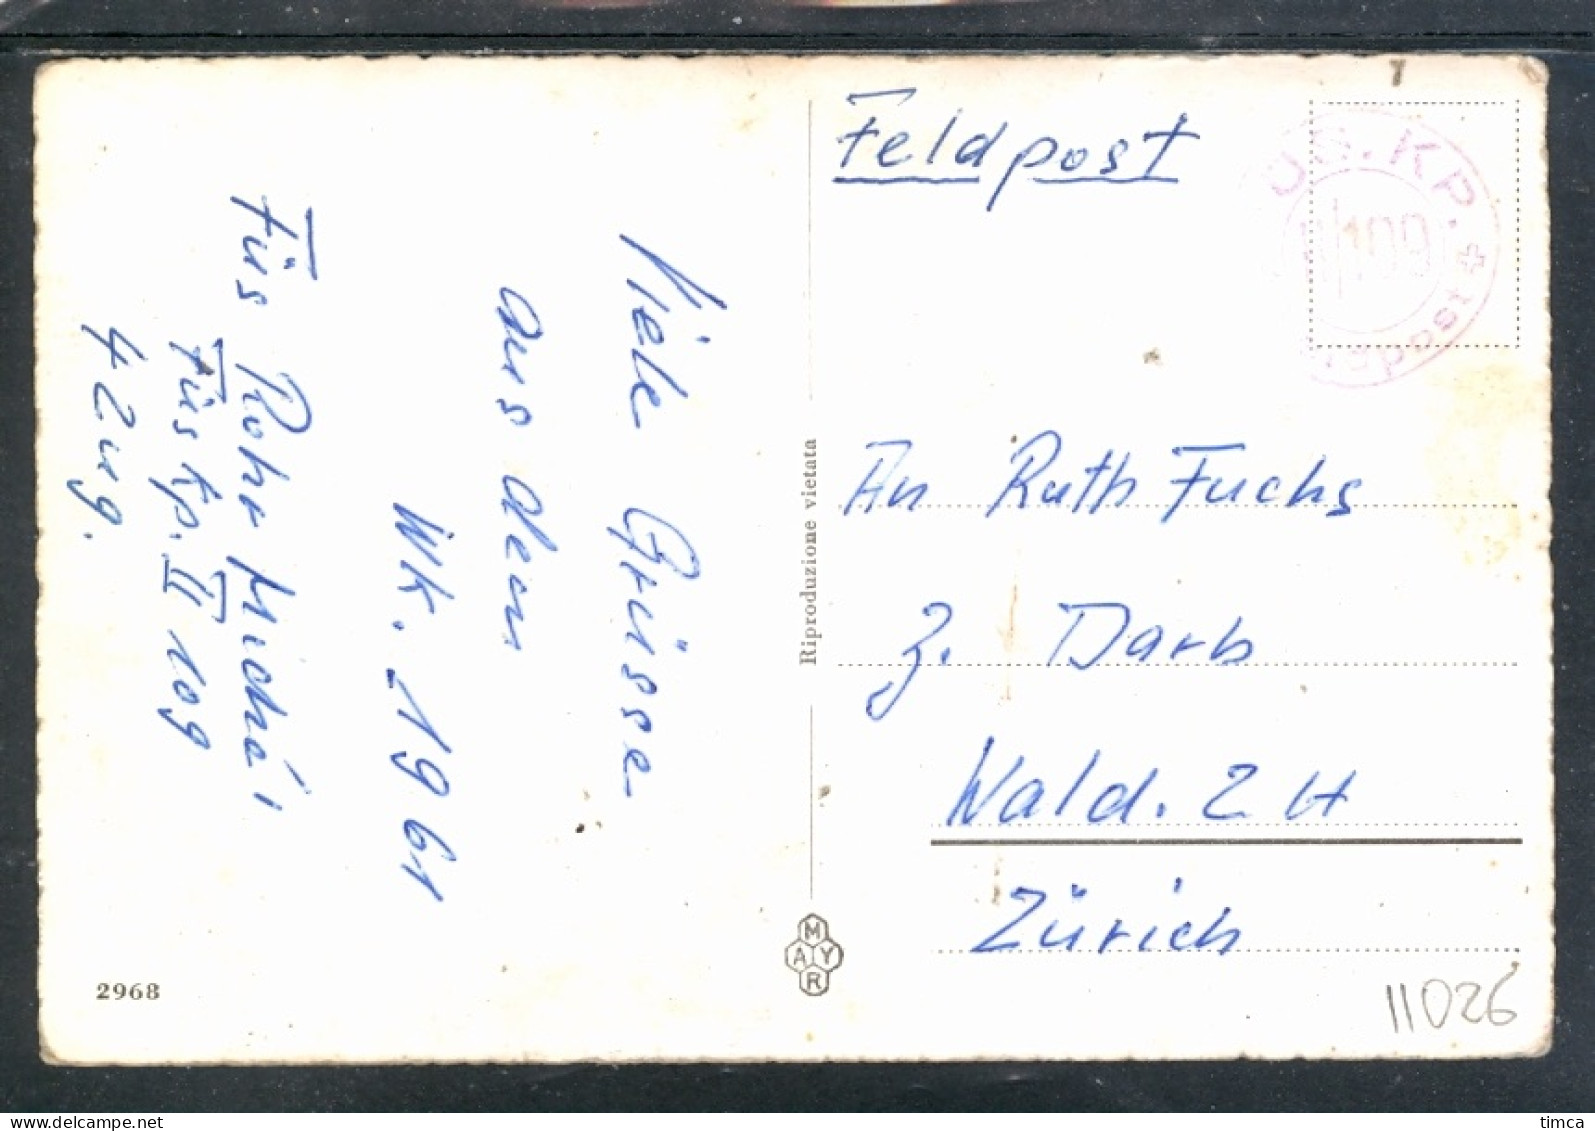 Feldpost
ÜS. KP.
II/109
Feldpost
Viele Grüsse
aus dem
WK. 1961
Füs Rohr Micha
Füs Kp. II 109
4 Zug.
An Ruth Fuchs
z. Darb
Wald. ZH
Zürich
Riproduzione vietata
MAYR
2968
11026
delcampe.net
timca